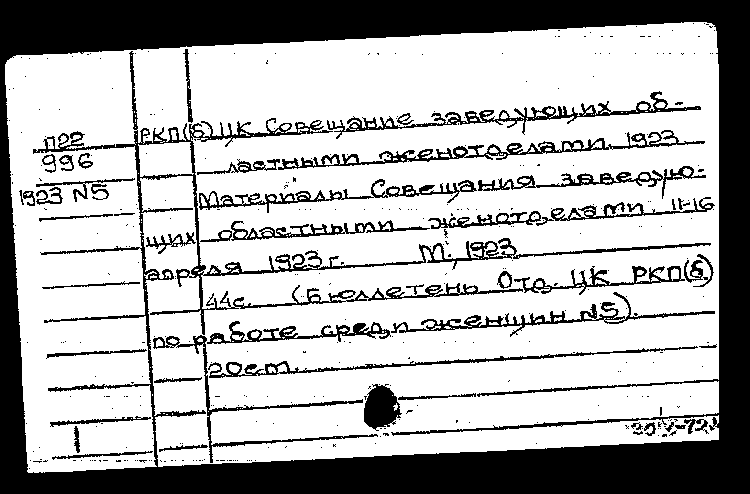 П22
996
1923 N5
РКП(б) ЦК Совещание заведующих об-
ластными женотделами. 1923
Материалы Совещания заведую-
щих областными женотделами. 11-16
апреля 1923 г. М., 1923
44с. (Бюллетень Отд. ЦК РКП(б)
по работе среди женщин N5).
20 cm.
1